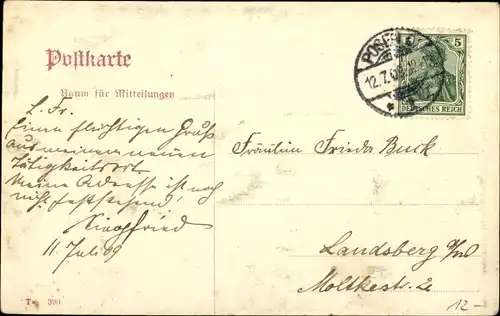 Postkarte
Raum für Mitteilungen
L. Fr.
Einen flüchtigen Gruß
aus meinem neuen
Tätigkeitsort.
Meine Adresse ist noch
nicht feststehend,
Siegfried
11 Juli 09
POSEN
12.7.09
5
DEUTSCHES REICH
Fräulein Frieda Buck
Landsberg a/W
Moltkestr. 2
T 390
12-